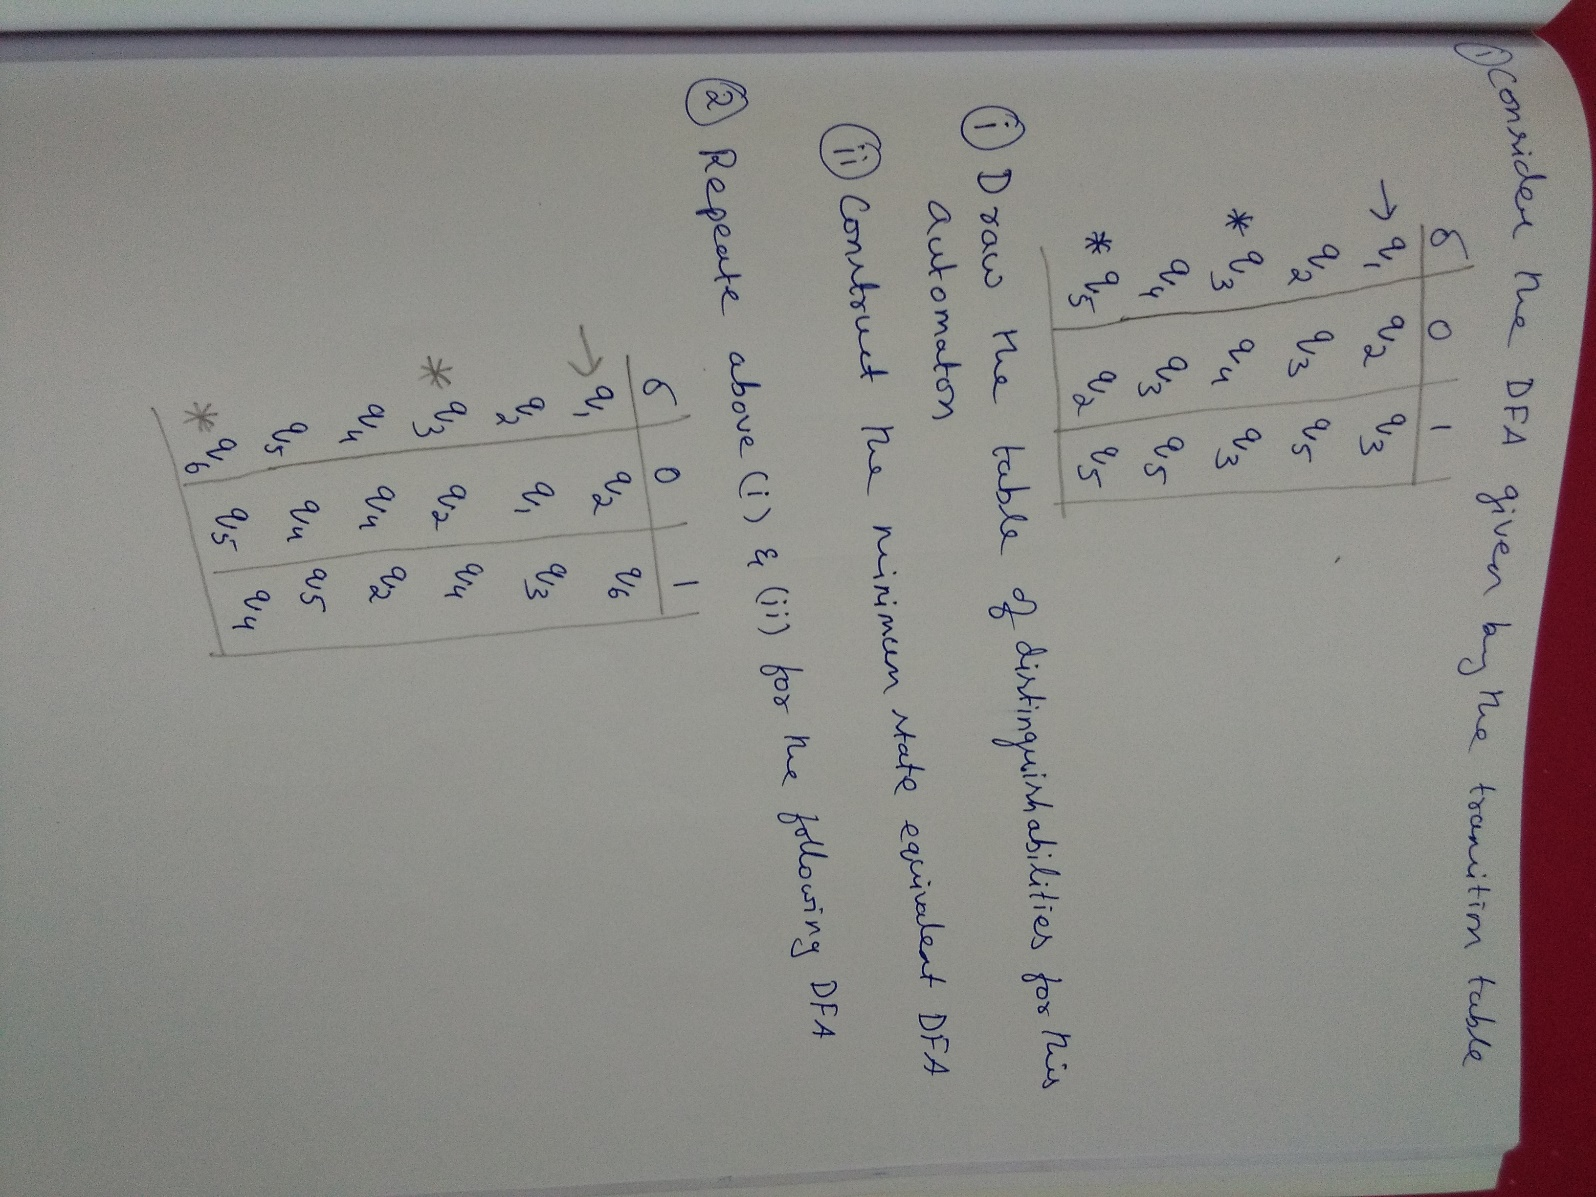 ① Consider the DFA given by the transition table
δ 0 1
→ q1 q2 q3
q2 q3 q5
* q3 q4 q3
q4 q3 q5
* q5 q2 q5
ⓘ Draw the table of distinguishabilities for this
automaton
ⓘⓘ Construct the minimum state equivalent DFA
② Repeate above (i) & (ii) for the following DFA
δ 0 1
→ q1 q2 q6
q2 q1 q3
* q3 q2 q4
q4 q4 q2
q5 q4 q5
* q6 q5 q4